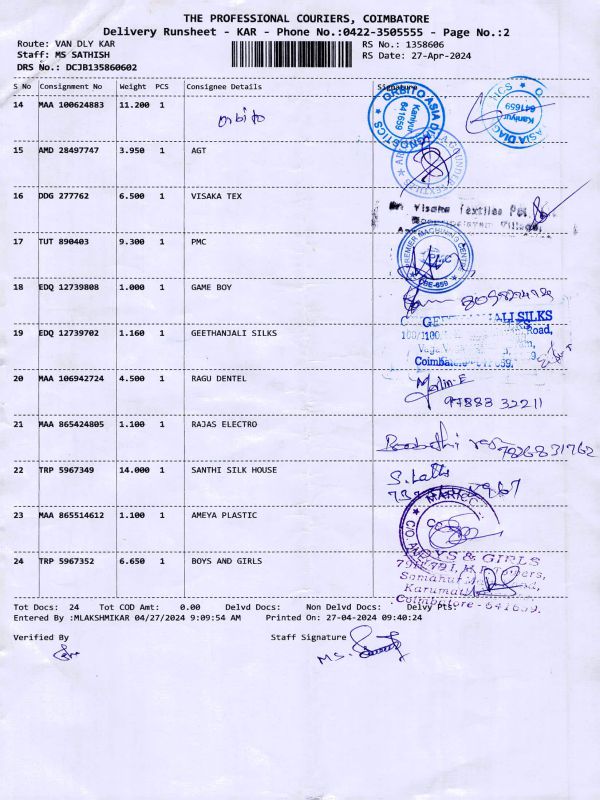 THE PROFESSIONAL COURIERS, COIMBATORE
Delivery Runsheet - KAR - Phone No.:0422-3505555 - Page No.:2
Route: VAN DLY KAR RS No.: 1358606
Staff: MS SATHISH RS Date: 27-Apr-2024
DRS No.: DCJB135860602
S No Consignment No Weight PCS Consignee Details Signature
14 MAA 100624883 11.200 1 orbito
ORBITO ASIA DIAGNOSTICS Kaniyur 641659
15 AMD 28497747 3.950 1 AGT
16 DDG 277762 6.500 1 VISAKA TEX
Visaka Textiles
17 TUT 890403 9.300 1 PMC
PREMIER MACHINING CENTRE PMC
18 EDQ 12739808 1.000 1 GAME BOY
19 EDQ 12739702 1.160 1 GEETHANJALI SILKS
GEETHANJALI SILKS
Road,
20 MAA 106942724 4.500 1 RAGU DENTEL
Merlin.E
97888 32211
21 MAA 865424805 1.100 1 RAJAS ELECTRO
7826831762
22 TRP 5967349 14.000 1 SANTHI SILK HOUSE
S. Latha
23 MAA 865514612 1.100 1 AMEYA PLASTIC
24 TRP 5967352 6.650 1 BOYS AND GIRLS
BOYS & GIRLS
Coimbatore - 641659.
Tot Docs: 24 Tot COD Amt: 0.00 Delvd Docs: Non Delvd Docs: Delvy Pts:
Entered By :MLAKSHMIKAR 04/27/2024 9:09:54 AM Printed On: 27-04-2024 09:40:24
Verified By Staff Signature
MS.